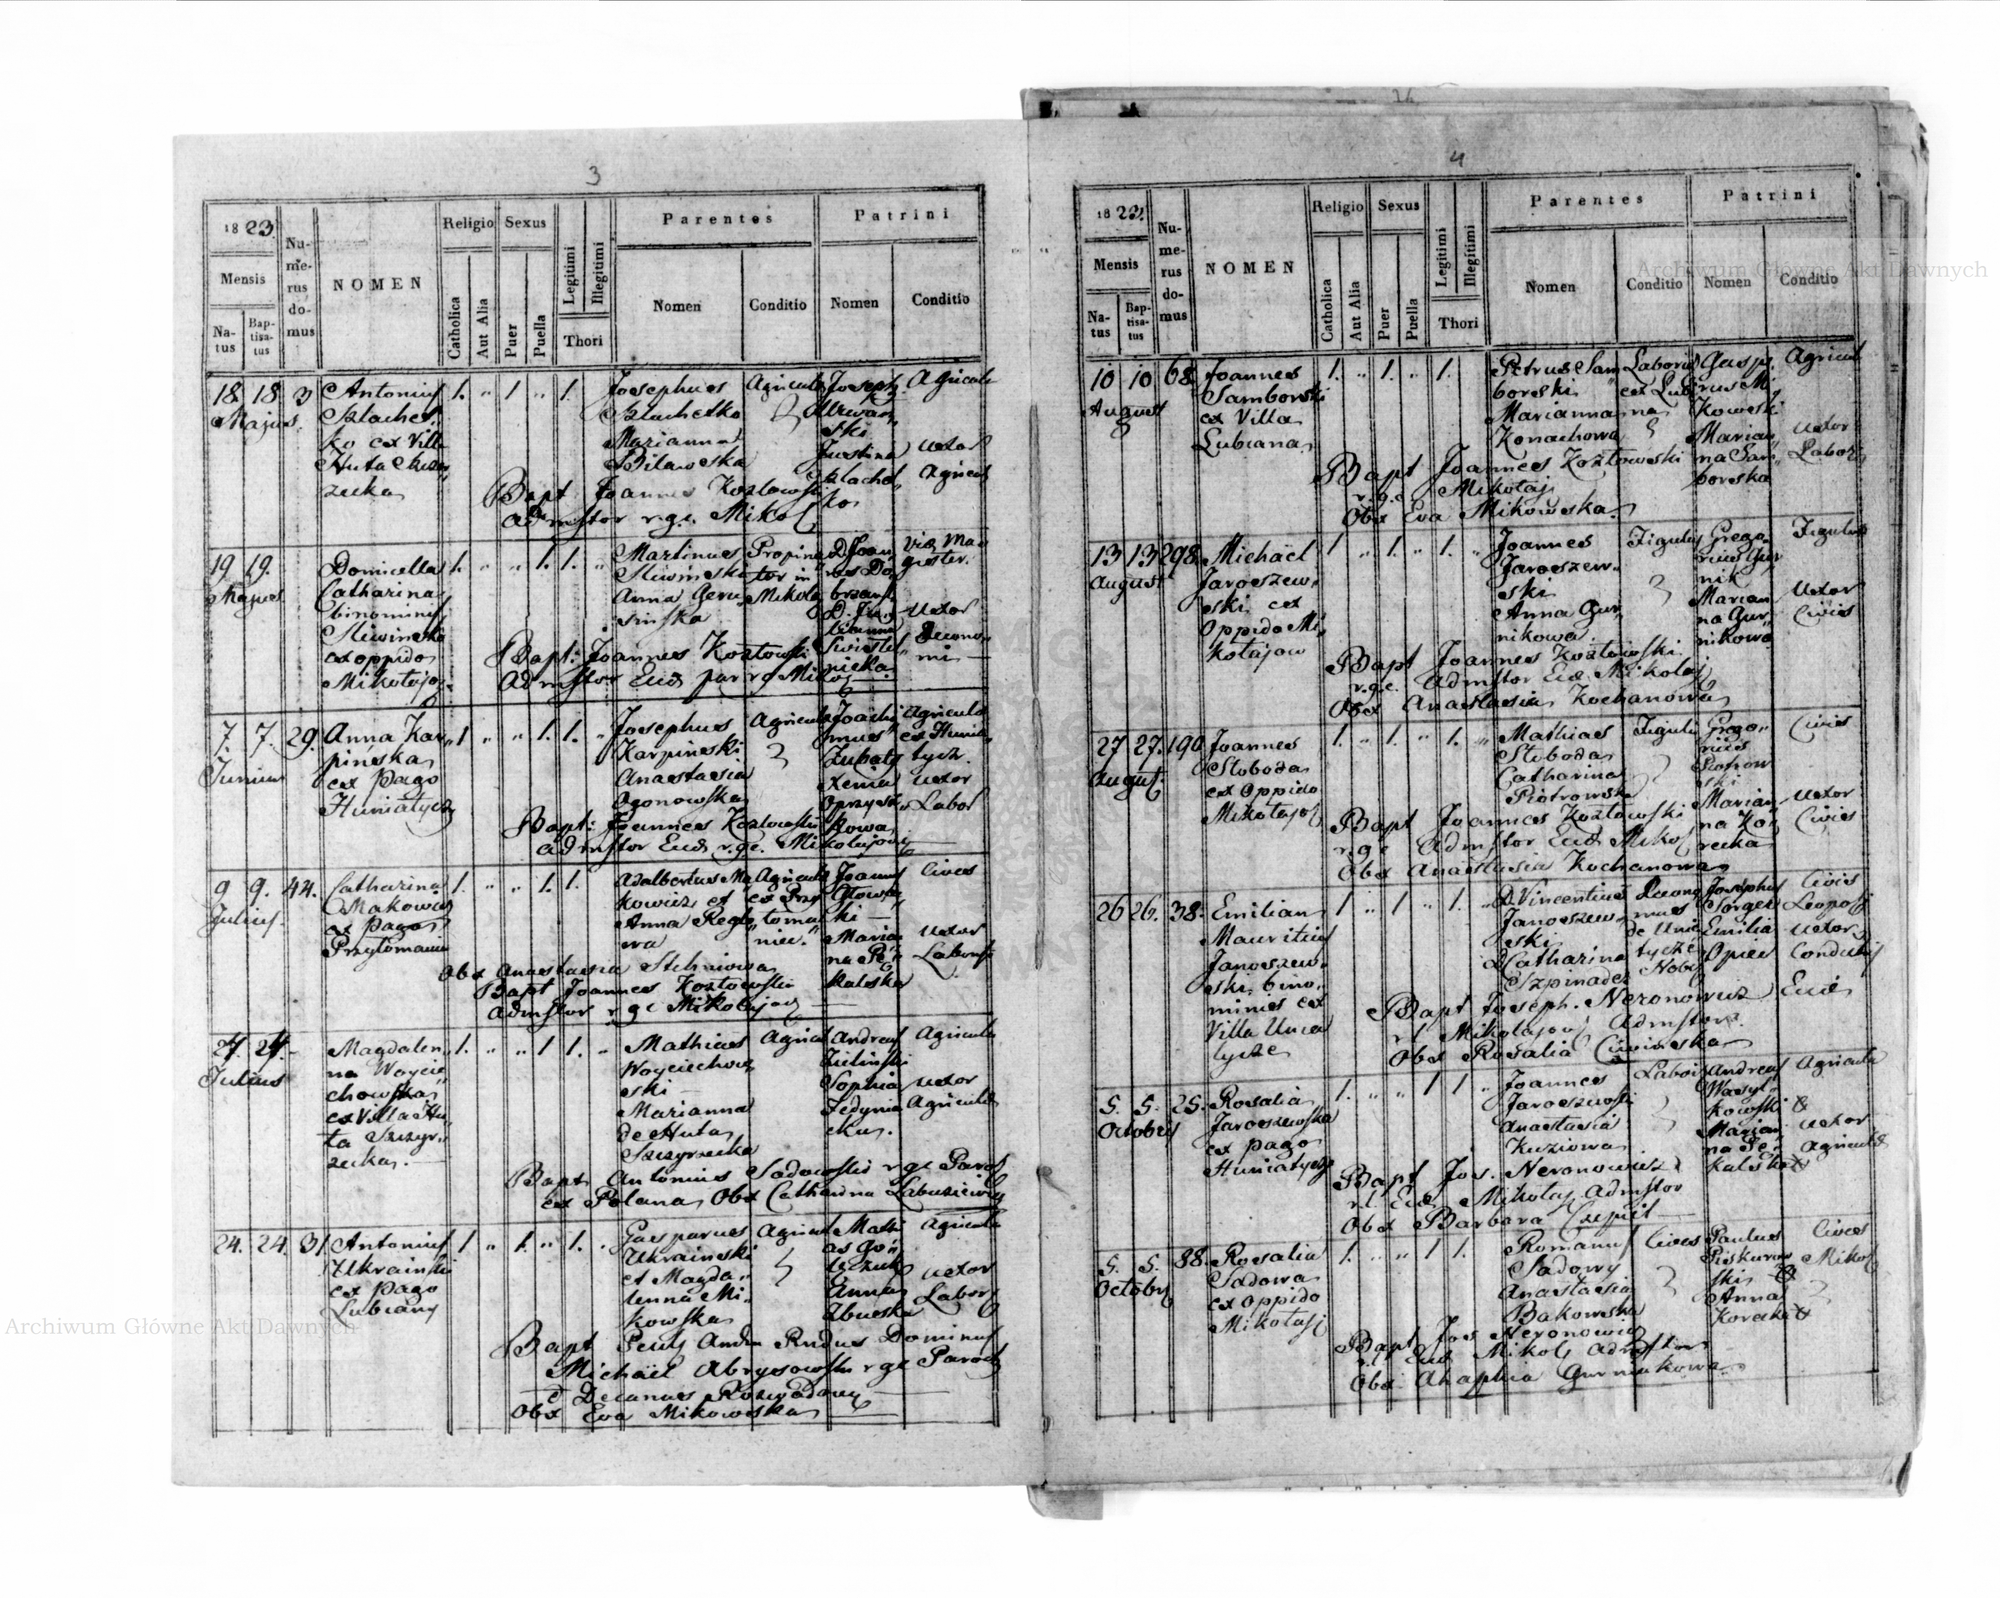 3
1823.
Mensis
Na-
tus
Bap-
tisa-
tus
Nu-
me-
rus
do-
mus
NOMEN
Religio
Catholica
Aut Alia
Sexus
Puer
Puella
Legitimi
Illegitimi
Thori
Parentes
Nomen
Conditio
Patrini
Nomen
Conditio
18. 18. 3
Majus
Antonius
Szlachet
ko ex Villa
Huta
zecka
1. " 1 " 1.
Josephus
Szlachetko
Marianna
Bilawska
Agricola
Joseph
ski
Justina
Szlachet
ko
Agricola
Uxor
Agricol
Bapt Joannes Kozlowski
Admstor r.g.c. Mikol
19 19.
Majus
Domicella
Catharina
binominis
Sliwinska
ex oppido
Mikolajow
1. " " 1. 1. "
Martinus
Sliwinski
Anna Geru
sinska
Propina
tor in
Mikolaj
D. Joan
nes Do
brzans
Viae Ma
gister.
Uxor
Oecono
mi
Bapt: Joannes Kozlowski
Admstor Eccl par r g Mikol
7. 7. 29.
Junius
Anna Kar
pinska
ex pago
Huniatycz
1 " " 1. 1. "
Josephus
Karpinski
Anastasia
Ogonowska
Agricola
Joachi
mus
Zubaty
Xenia
Oprysz
kowa
Agricola
ex Hunia
tycz.
Uxor
Labor
Bapt: Joannes Kozlowski
admstor Eccl r.g.c. Mikolajow
9 9. 44.
Julius.
Catharina
Makowicz
ex pago
Przytomanie
1. " " 1. 1.
Adalbertus Ma
kowicz et
Anna Reglo
wa
Agricola
ex Przy
toma
niec.
Joannes
Glowa
ki
Maria
na Pe
kalska
Cives
Uxor
Laboris
Obx Anastasia Stelmowa
Bapt Joannes Kozlowski
Admstor r g c Mikolajow
24. 24.
Julius
Magdalen
na Wojcie
chowska
ex Villa Hu
ta Szczyr
zecka.
1. " " 1 1. "
Mathias
Woyciechow
ski
Marianna
de Huta
Szczyrzecka
Agricol
Andreas
Zielinski
Sophia
Zedynia
ckus.
Agricola
Uxor
Agricola
Bapt Antonius Sadowski r g c Paroch
ex Polana Obx Catharina Labusiewicz
24. 24. 31
Antonius
Ukrainski
ex pago
Lubiany
1 " 1. " 1. "
Gasparus
Ukrainski
et Magda
lenna Mi
kowska
Agricol
Mathi
as Go
Anna
Agricola
Uxor
Labor
Bapt Perils Andm Rndus Dominus
Michael Abrysowski r g c Paroch
Decanus Rozwadow
Obx Eva Mikowska
4
1823.
Mensis
Na-
tus
Bap-
tisa-
tus
Nu-
me-
rus
do-
mus
NOMEN
Religio
Catholica
Aut Alia
Sexus
Puer
Puella
Legitimi
Illegitimi
Thori
Parentes
Nomen
Conditio
Patrini
Nomen
Conditio
10 10 68
August
Joannes
Samborski
ex Villa
Lubiana
1. " 1. " 1.
Petrus Sam
borski
Marianna
Konachowa
Laboris
ex Lubia
na
Gaspa
rus Mi
kowski
Marian
na Sam
borska
Agricol
Uxor
Labor
Bapt Joannes Kozlowski
r.g.c Mikolaj
Obx Eva Mikowska.
13 13 298
August
Michael
Jaroszew
ski ex
Oppido Mi
kolajow
1 " 1. " 1. "
Joannes
Jaroszew
ski
Anna Gur
nikowa
Figulus
Grego
rius Gur
nik
Marian
na Gur
nikowa
Figulus
Uxor
Civis
Bapt Joannes Kozlowski
r.g.c. Admstor Eccl Mikolaj
Obx Anastasia Kochanowa
27 27. 190
August
Joannes
Sloboda
ex Oppido
Mikolajow
1. " 1. " 1. "
Mathias
Sloboda
Catharina
Piotrowska
Figulus
Grego
rius
Piotrow
ski
Marian
na Ko
recka
Civis
Uxor
Civis
Bapt Joannes Kozlowski
r.g.c Admstor Eccl Mikol
Obx Anastasia Kochanowa
26 26. 38.
Emilian
Mauritius
Jaroszew
ski bino
minis ex
Villa Unia
tycze
1 " 1 " 1. "
D. Vincentius
Jaroszew
ski
Catharina
Szpinadel
Oecono
mus
de Unia
tycze
Nob
Josephus
Sorger
Emilia
Opiec
Civis
Leopol
Uxor
Conduct
Bapt Joseph. Neronowicz Eccl
r.l. Mikolajow Admstor.
Obx Rosalia Cwiorska
5. 5. 25.
Octobris
Rosalia
Jaroszewska
ex pago
Huniatycze
1. " " 1 1. "
Joannes
Jaroszewski
Anastasia
Kuziowa
Laboris
Andreas
Wasyl
kowski &
Marian
na Pe
kalska
Agricola
Uxor
Agricola
Bapt Jos. Neronowicz
r.l. Eccl Mikolaj Admstor
Obx Barbara Czepil
5. 5. 88.
Octobris
Rosalia
Sadowa
ex Oppido
Mikolaj
1. " " 1 1.
Romanus
Sadowy
Anastasia
Bakowska
Cives
Paulus
Piskurow
ski &
Anna
Korecka
Cives
Mikol
Bapt Jos Neronowicz
r.l. Eccl Mikolj Admstor
Obx Ahaphia Gurnikowa
Archiwum Główne Akt Dawnych
Archiwum Główne Akt Dawnych